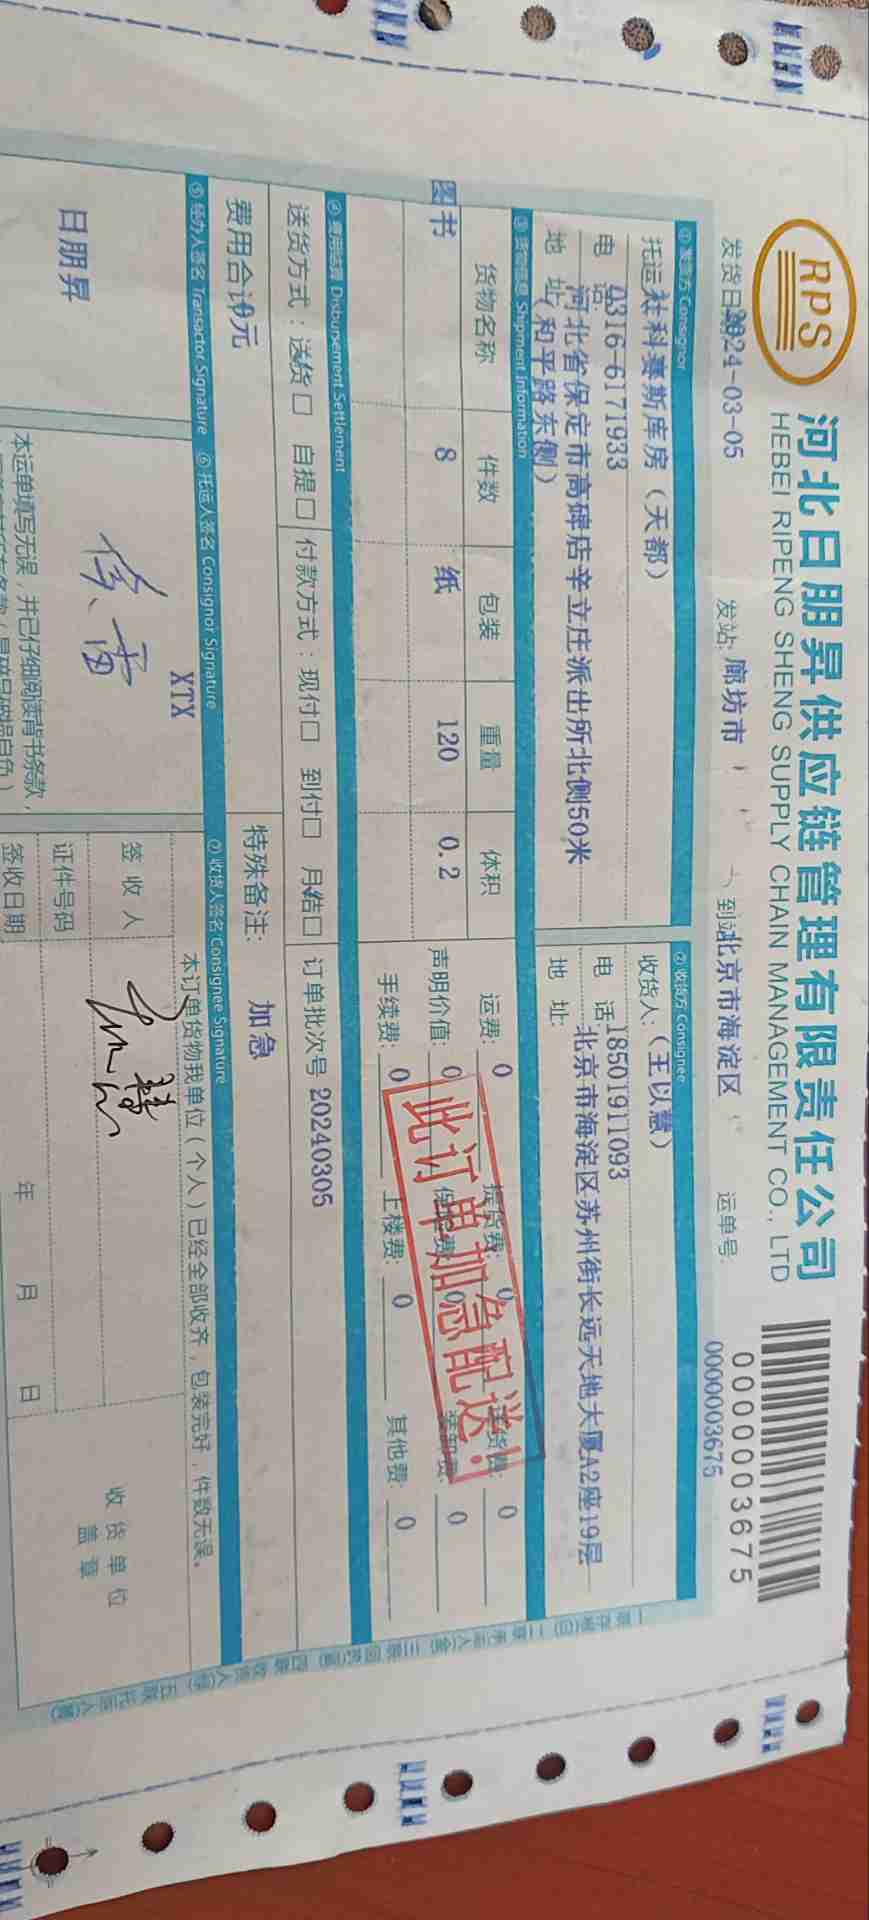 RPS
河北日朋昇供应链管理有限责任公司
HEBEI RIPENG SHENG SUPPLY CHAIN MANAGEMENT CO., LTD
0000003675
0000003675
发货日期 2024-03-05 发站: 廊坊市 到站 北京市海淀区 运单号:
① 发货方 Consignor
托运 社科赛斯库房（天都）
电话 0316-6171933
地址: 河北省保定市高碑店辛立庄派出所北侧50米
（和平路东侧）
② 收货方 Consignee
收货人: （王以慧）
电话 18501911093
地址: 北京市海淀区苏州街长远天地大厦A2座19层
③ 货物信息 Shipment Information
货物名称 件数 包装 重量 体积
图书 8 纸 120 0.2
运费: 0 提货费: 0 送货费: 0
声明价值: 0 保险费: 0 装卸费: 0
手续费: 0 上楼费: 0 其他费: 0
此订单加急配送!
④ 费用结算 Disbursement Settlement
送货方式: 送货□ 自提□ 付款方式: 现付□ 到付□ 月结□ 订单批次号 20240305
费用合计 0元 特殊备注: 加急
⑤ 经办人签名 Transactor Signature
日朋昇
⑥ 托运人签名 Consignor Signature
XTX
本运单填写无误，并已仔细阅读背书条款，
⑦ 收货人签名 Consignee Signature
本订单货物我单位（个人）已经全部收齐，包装完好，件数无误。
签收人
证件号码
签收日期 年 月 日
收货单位
盖章